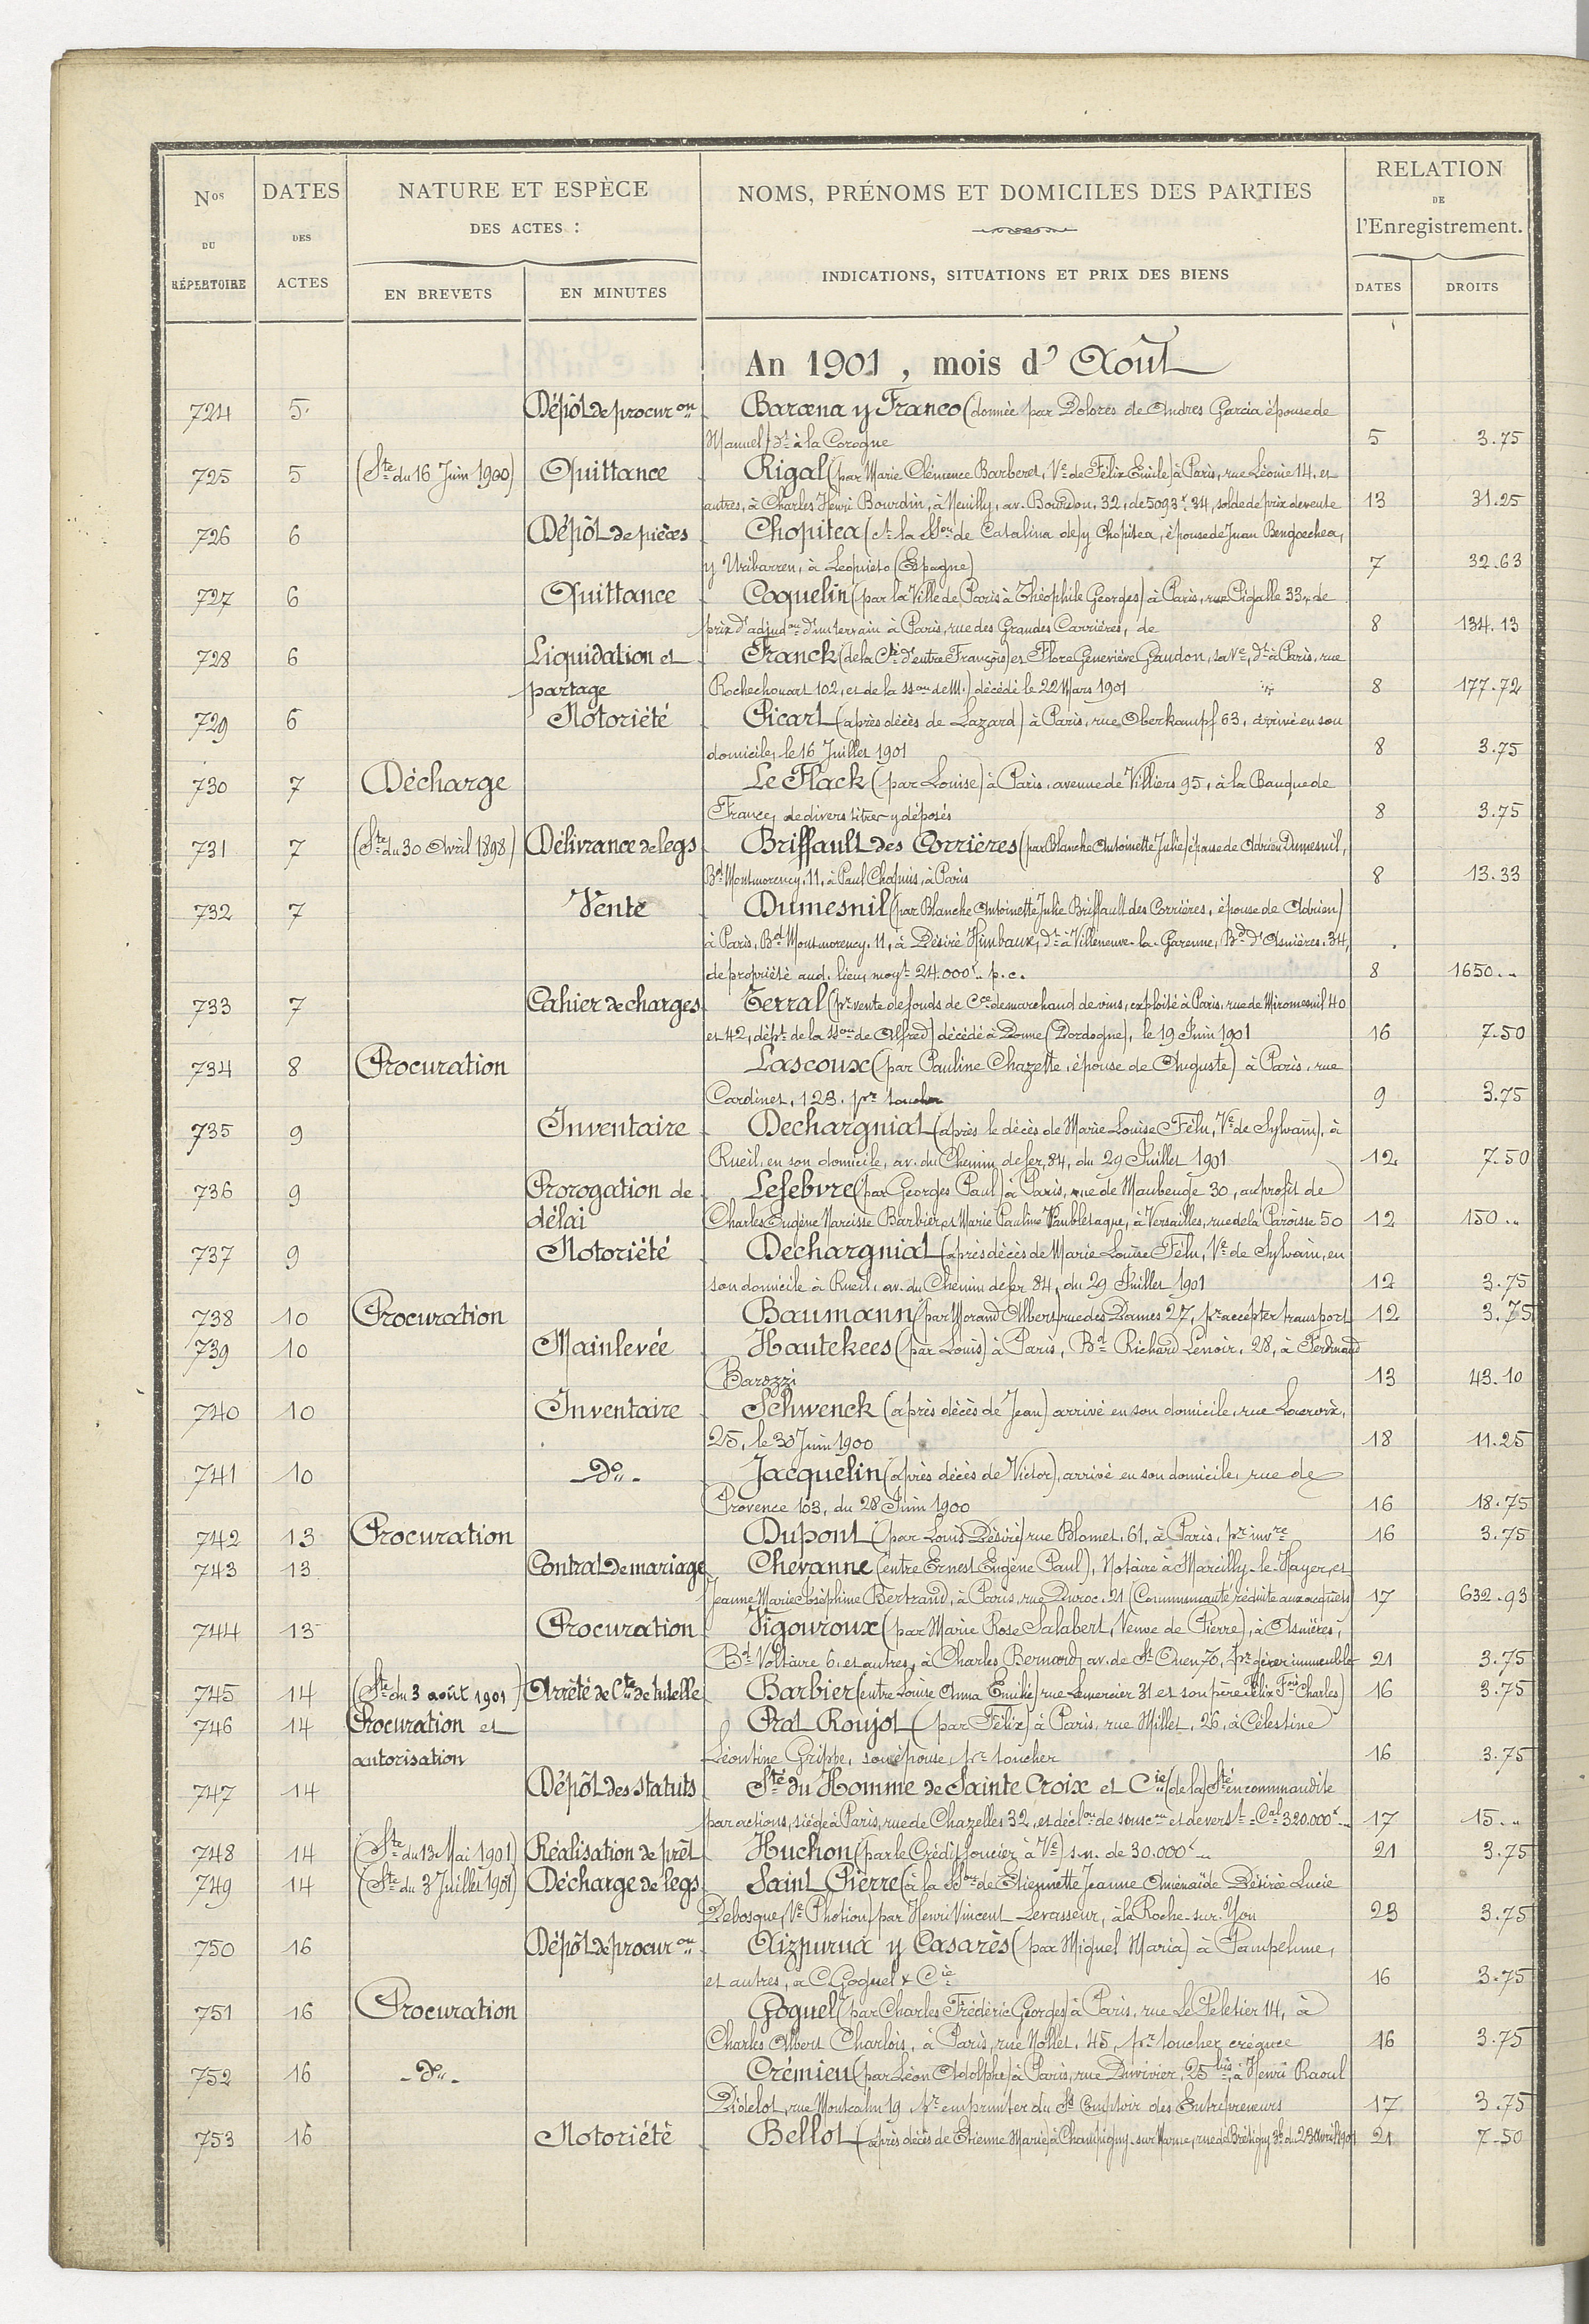 Nos DU RÉPERTOIRE
DATES DES ACTES
NATURE ET ESPÈCE DES ACTES :
EN BREVETS
EN MINUTES
NOMS, PRÉNOMS ET DOMICILES DES PARTIES
INDICATIONS, SITUATIONS ET PRIX DES BIENS
RELATION DE l'Enregistrement.
DATES
DROITS
An 1901, mois d' Août
724 5 Dépôt de procuron Barcena y Franco (donnée par Dolorès de Andres Garcia épouse de
Manuel) dt à la Corogne 5 3.75
725 5 (Ste du 16 Juin 1900) Quittance Rigal (par Marie Clémence Barberet, Ve de Félix Emile) à Paris, rue Léonie 14, et
autres, à Charles Henri Bourdin, à Neuilly, av. Bourdon, 32, de 5093f.34, solde de prix de vente 13 31.25
726 6 Dépôt de pièces Chopitea (ct la Sson de Catalina de) y Chopitea, épouse de Juan Bengoechea,
y Uribarren, à Lequieto (Espagne) 7 32.63
727 6 Quittance Coquelin (par la Ville de Paris à Théophile Georges) à Paris, rue Pigalle 33, de
prix d'adjudon d'un terrain à Paris, rue des Grandes Carrières, de 8 134.13
728 6 Liquidation et Franck (de la Cté d'entre François) et Flore Geneviève Gandon, sa Ve, dt à Paris, rue
partage Rochechouart 102, et de la sson de M.) décédé le 22 Mars 1901 8 177.72
729 6 Notoriété Picart (après décès de Lazard) à Paris, rue Oberkampf 63, arrivé en son
domicile, le 16 Juillet 1901 8 3.75
730 7 Décharge Le Flack (par Louise) à Paris, avenue de Villiers 95, à la Banque de
France, de divers titres y déposés 8 3.75
731 7 (Ste du 30 Avril 1898) Délivrance de legs Briffault des Corrières (par Blanche Antoinette Julie) épouse de Adrien Dumesnil,
Bd Montmorency, 11, à Paul Choquis, à Paris 8 13.33
732 7 Vente Dumesnil (par Blanche Antoinette Julie Briffault des Corrières, épouse de Adrien)
à Paris, Bd Montmorency, 11, à Désiré Himbaux, dt à Villeneuve-la-Garenne, Bd d'Asnières, 34,
de propriété aud. lieu, moyt 24.000f.. p.c. 8 1650..
733 7 Cahier de charges Terral (pr vente de fonds de Cce de marchand de vins, exploité à Paris, rue de Miromesnil 40
et 42, dépt de la sson de Alfred) décédé à Domme (Dordogne), le 19 Juin 1901 16 7.50
734 8 Procuration Lascoux (par Pauline Chazette, épouse de Auguste) à Paris, rue
Cardinet, 123, pr toucher 9 3.75
735 9 Inventaire Dechargniat (après le décès de Marie Louise Félu, Ve de Sylvain), à
Rueil, en son domicile, av. du Chemin de fer, 84, du 29 Juillet 1901 12 7.50
736 9 Prorogation de Lefebvre (par Georges Paul) à Paris, rue de Maubeuge 30, au profit de
délai Charles Eugène Narcisse Barbier et Marie Pauline Vaubletaque, à Versailles, rue de la Paroisse 50 12 150..
737 9 Notoriété Dechargniat (après décès de Marie Louise Félu, Ve de Sylvain, en
son domicile à Rueil, av. du Chemin de fer 84, du 29 Juillet 1901 12 3.75
738 10 Procuration Baumann (par Morand Albert) rue des Dames 27, pr accepter transport 12 3.75
739 10 Mainlevée Hautekees (par Louis) à Paris, Bd Richard Lenoir, 28, à Ferdinand
Barozzi 13 43.10
740 10 Inventaire Schwenck (après décès de Jean) arrivé en son domicile, rue Lacroix,
25, le 30 Juin 1900 18 11.25
741 10 do Jacquelin (après décès de Victor), arrivé en son domicile, rue de
Provence 103, du 28 Juin 1900 16 18.75
742 13 Procuration Dupont (par Louis Désiré) rue Blomet, 61, à Paris, pr invre 16 3.75
743 13 Contrat de mariage Chevanne (entre Ernest Eugène Paul), Notaire à Marcilly-le-Hayer, et
Jeanne Marie Joséphine Bertrand, à Paris, rue Duroc, 21 (Communauté réduite aux acquêts) 17 632.93
744 13 Procuration Vigouroux (par Marie Rose Salabert, Veuve de Pierre), à Asnières,
Bd Voltaire 6, et autres, à Charles Bernard, av. de St Ouen 70, pr gérer immeuble 21 3.75
745 14 (Ste du 3 août 1901) Arrêté de Cte de tutelle Barbier (entre Louise Anna Emilie) rue Lemercier 31 et son père Félix Fois Charles) 16 3.75
746 14 Procuration et Prat Roujot (par Félix) à Paris, rue Millet, 26, à Célestine
autorisation Léontine Grippe, son épouse, pr toucher 16 3.75
747 14 Dépôt des statuts Sté du Homme de Sainte Croix et Cie (de la) Sté en commandite
par actions, siège à Paris, rue de Chazelles 32, et déclon de souscon et de verst Cal 320.000f.. 17 15..
748 14 (Ste du 13 Mai 1901) Réalisation de prêt Huchon (par le Crédit foncier à Ve) s.n. de 30.000f.. 21 3.75
749 14 (Ste du 3 Juillet 1901) Décharge de legs Saint Pierre (à la Sson de Etiennette Jeanne Aménaïde Désirée Lucie
Debosque, Ve Photion) par Henri Vincent Levasseur, à la Roche-sur-Yon 23 3.75
750 16 Dépôt de procuron Aizpurua y Casarès (par Miguel Maria) à Pampelune,
et autres, à C. Goguel & Cie 16 3.75
751 16 Procuration Goguel (par Charles Frédéric Georges) à Paris, rue Le Peletier 14, à
Charles Albert Charlois, à Paris, rue Nollet, 45, pr toucher créance 16 3.75
752 16 do Crémieu (par Léon Adolphe) à Paris, rue Duvivier, 25 bis, à Henri Raoul
Didelot, rue Montcalm 19, pr emprunter du S Comptoir des Entrepreneurs 17 3.75
753 16 Notoriété Bellot (après décès de Etienne Marie) à Champigny-sur-Marne, rue de Brétigny 3b, du 23 Avril 1901 21 7.50